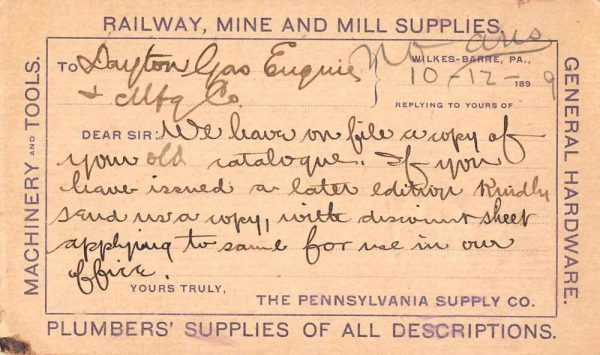 RAILWAY, MINE AND MILL SUPPLIES,
MACHINERY AND TOOLS.
GENERAL HARDWARE.
No ans
TO Dayton Gas Engine
& Mfg Co.
WILKES-BARRE, PA.,
10-12- 1899
REPLYING TO YOURS OF
DEAR SIR: We have on file a copy of
your old catalogue. If you
have issued a later edition Kindly
send us a copy, with discount sheet
applying to same for use in our
office.
YOURS TRULY,
THE PENNSYLVANIA SUPPLY CO.
PLUMBERS' SUPPLIES OF ALL DESCRIPTIONS.